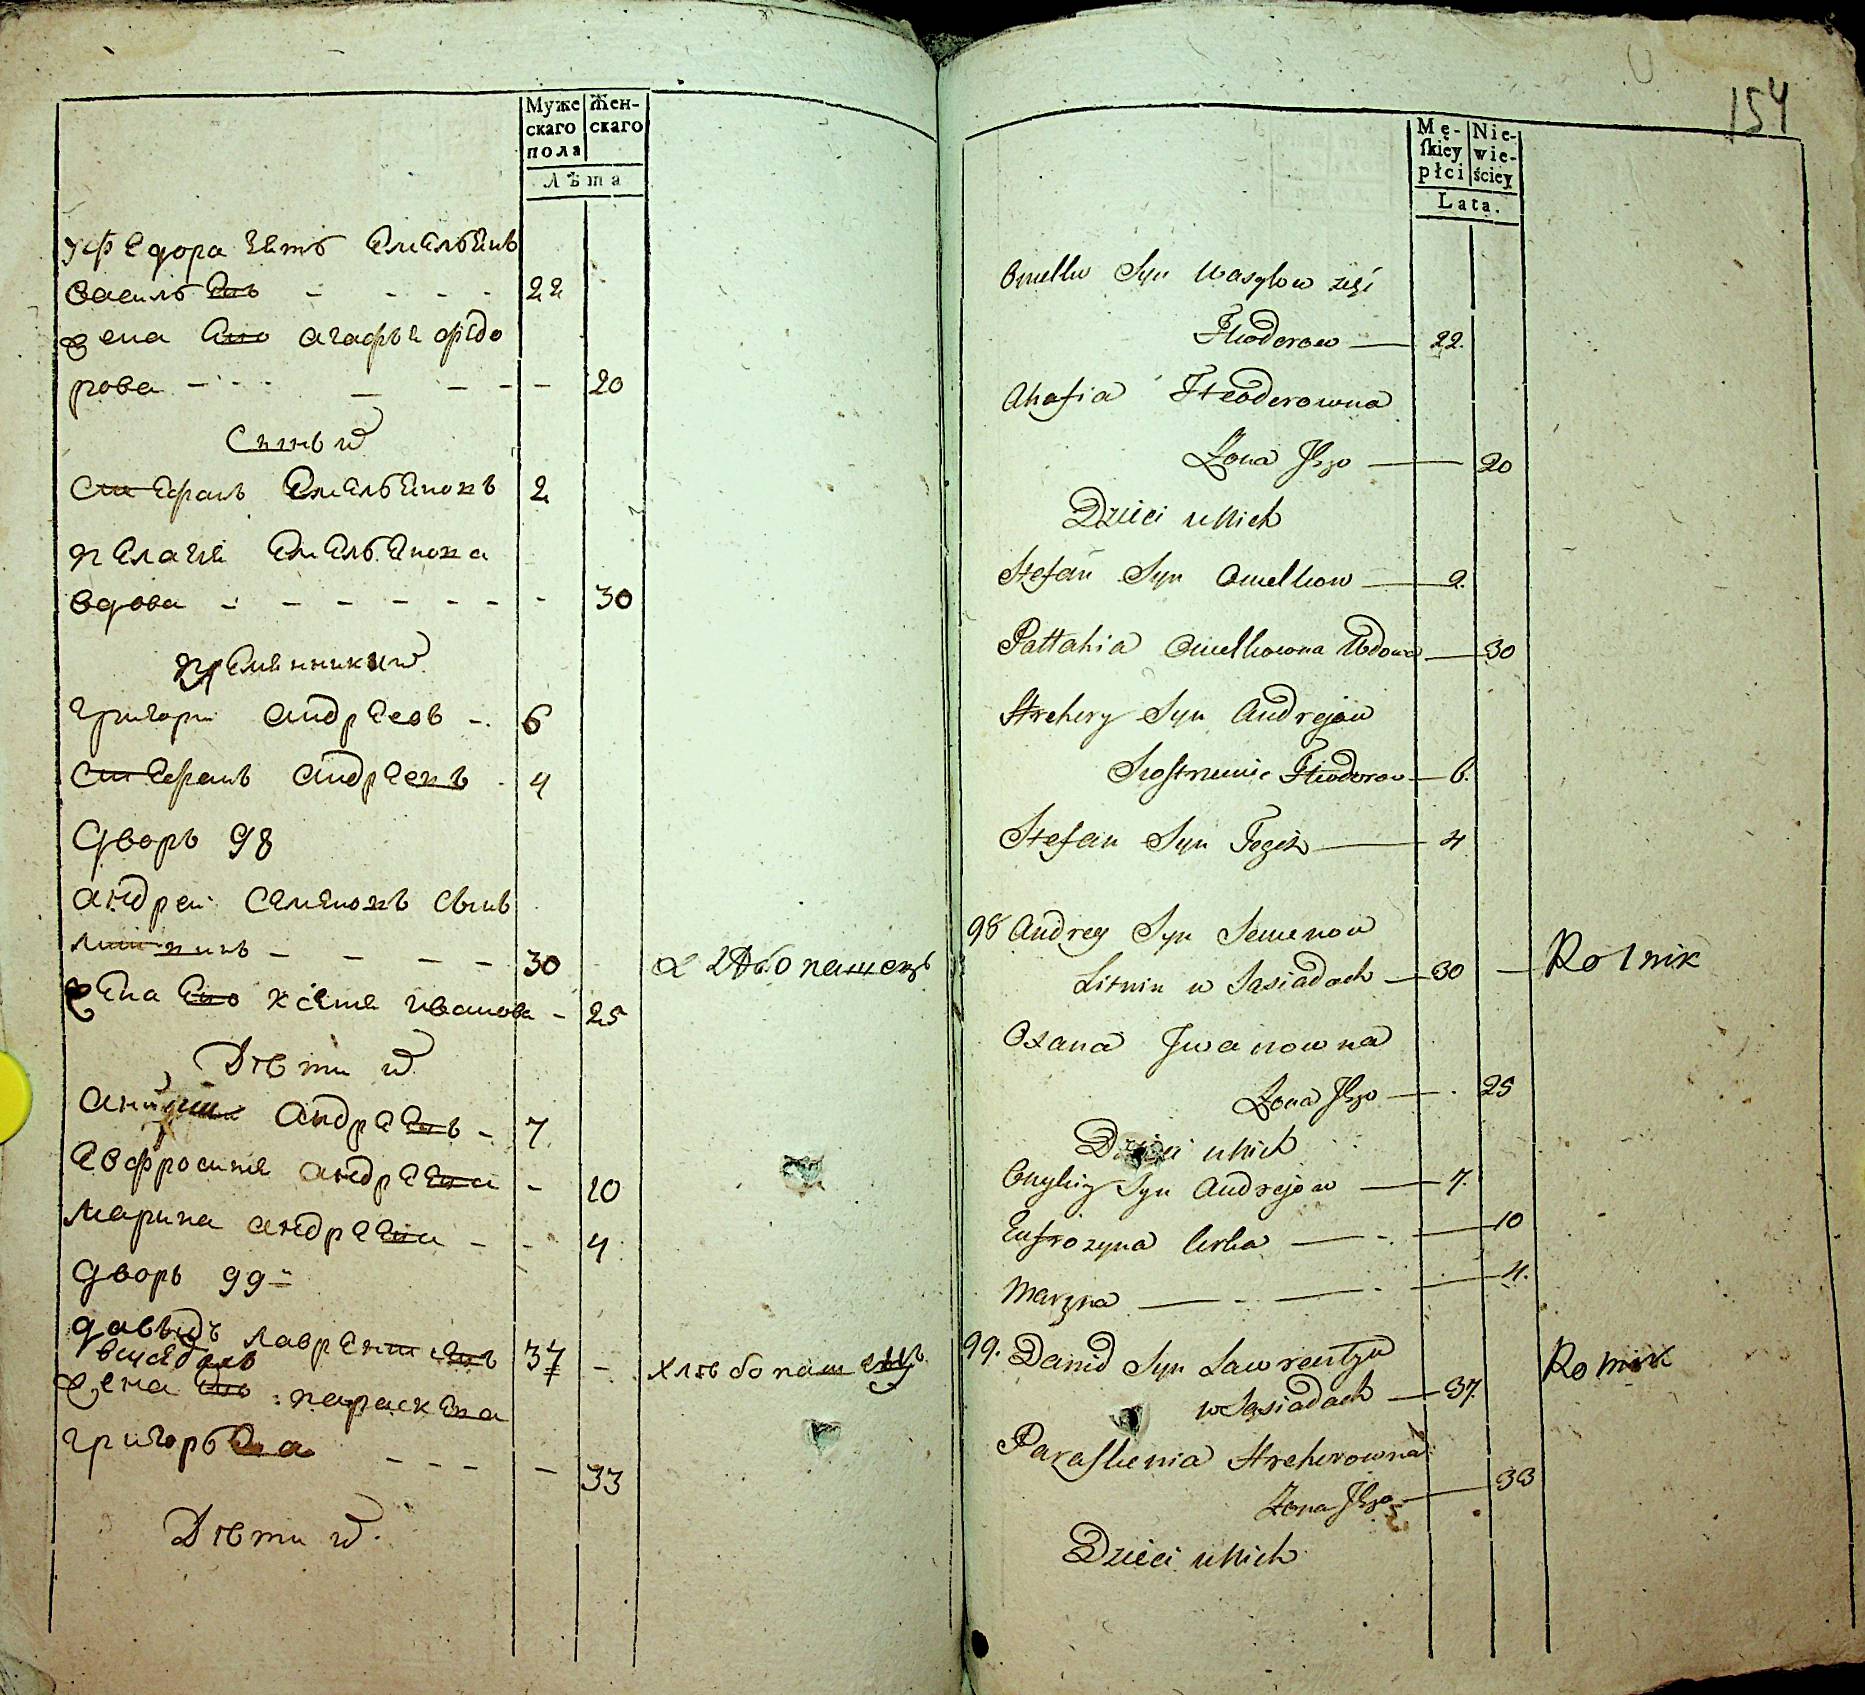 Муже
скаго
пола
Жен-
скаго
Лѣта
у Федора зять Емельянъ
Василь евъ 22
жена его агафья федо
рова 20
Сынъ
Стефанъ Емельяновъ 2
Пелагия Емельянова
вдова 30
племянники
григори андреевъ 6
Стефанъ андреевъ 4
Дворъ 98
андреи Семеновъ сынъ
30 хлѣбопашецъ
Жена его Ксения иванова 25
Дѣти
андреевъ 7
Евфросиния андреева 10
марина андреева 4
Дворъ 99
Давыдъ лаврентиевъ 37 хлѣбопашецъ
жена его параскева
григорьева 33
Дѣти
154
Mę-
skiey
płci
Nie-
wie-
ściey
Lata.
Omelko Syn Wasylow zięć
Fteodorow 22.
Ahafia Fteodorowna
Żona Jego 20
Dzieci u Nich
Stefan Syn Omelkow 2.
Pałtahia Omelkowna Wdowa 30
Hrehory Syn Andrejow
Siostrzenic Fteodorow 6.
Stefan Syn Tegoż 4
98 Andrey Syn Semenow
Litnin w Sąsiadach 30 Rolnik
Oxana Jwanowna
Żona Jego 25
Dzieci u Nich
Onyhij Syn Andrejow 7.
Eufrozyna Corka 10
Maryna 4.
99. Dawid Syn Lawrentyu
w Sąsiadach 37. Rolnik
Paraskewia Hrehorowna
Żona Jego 33
Dzieci u Nich